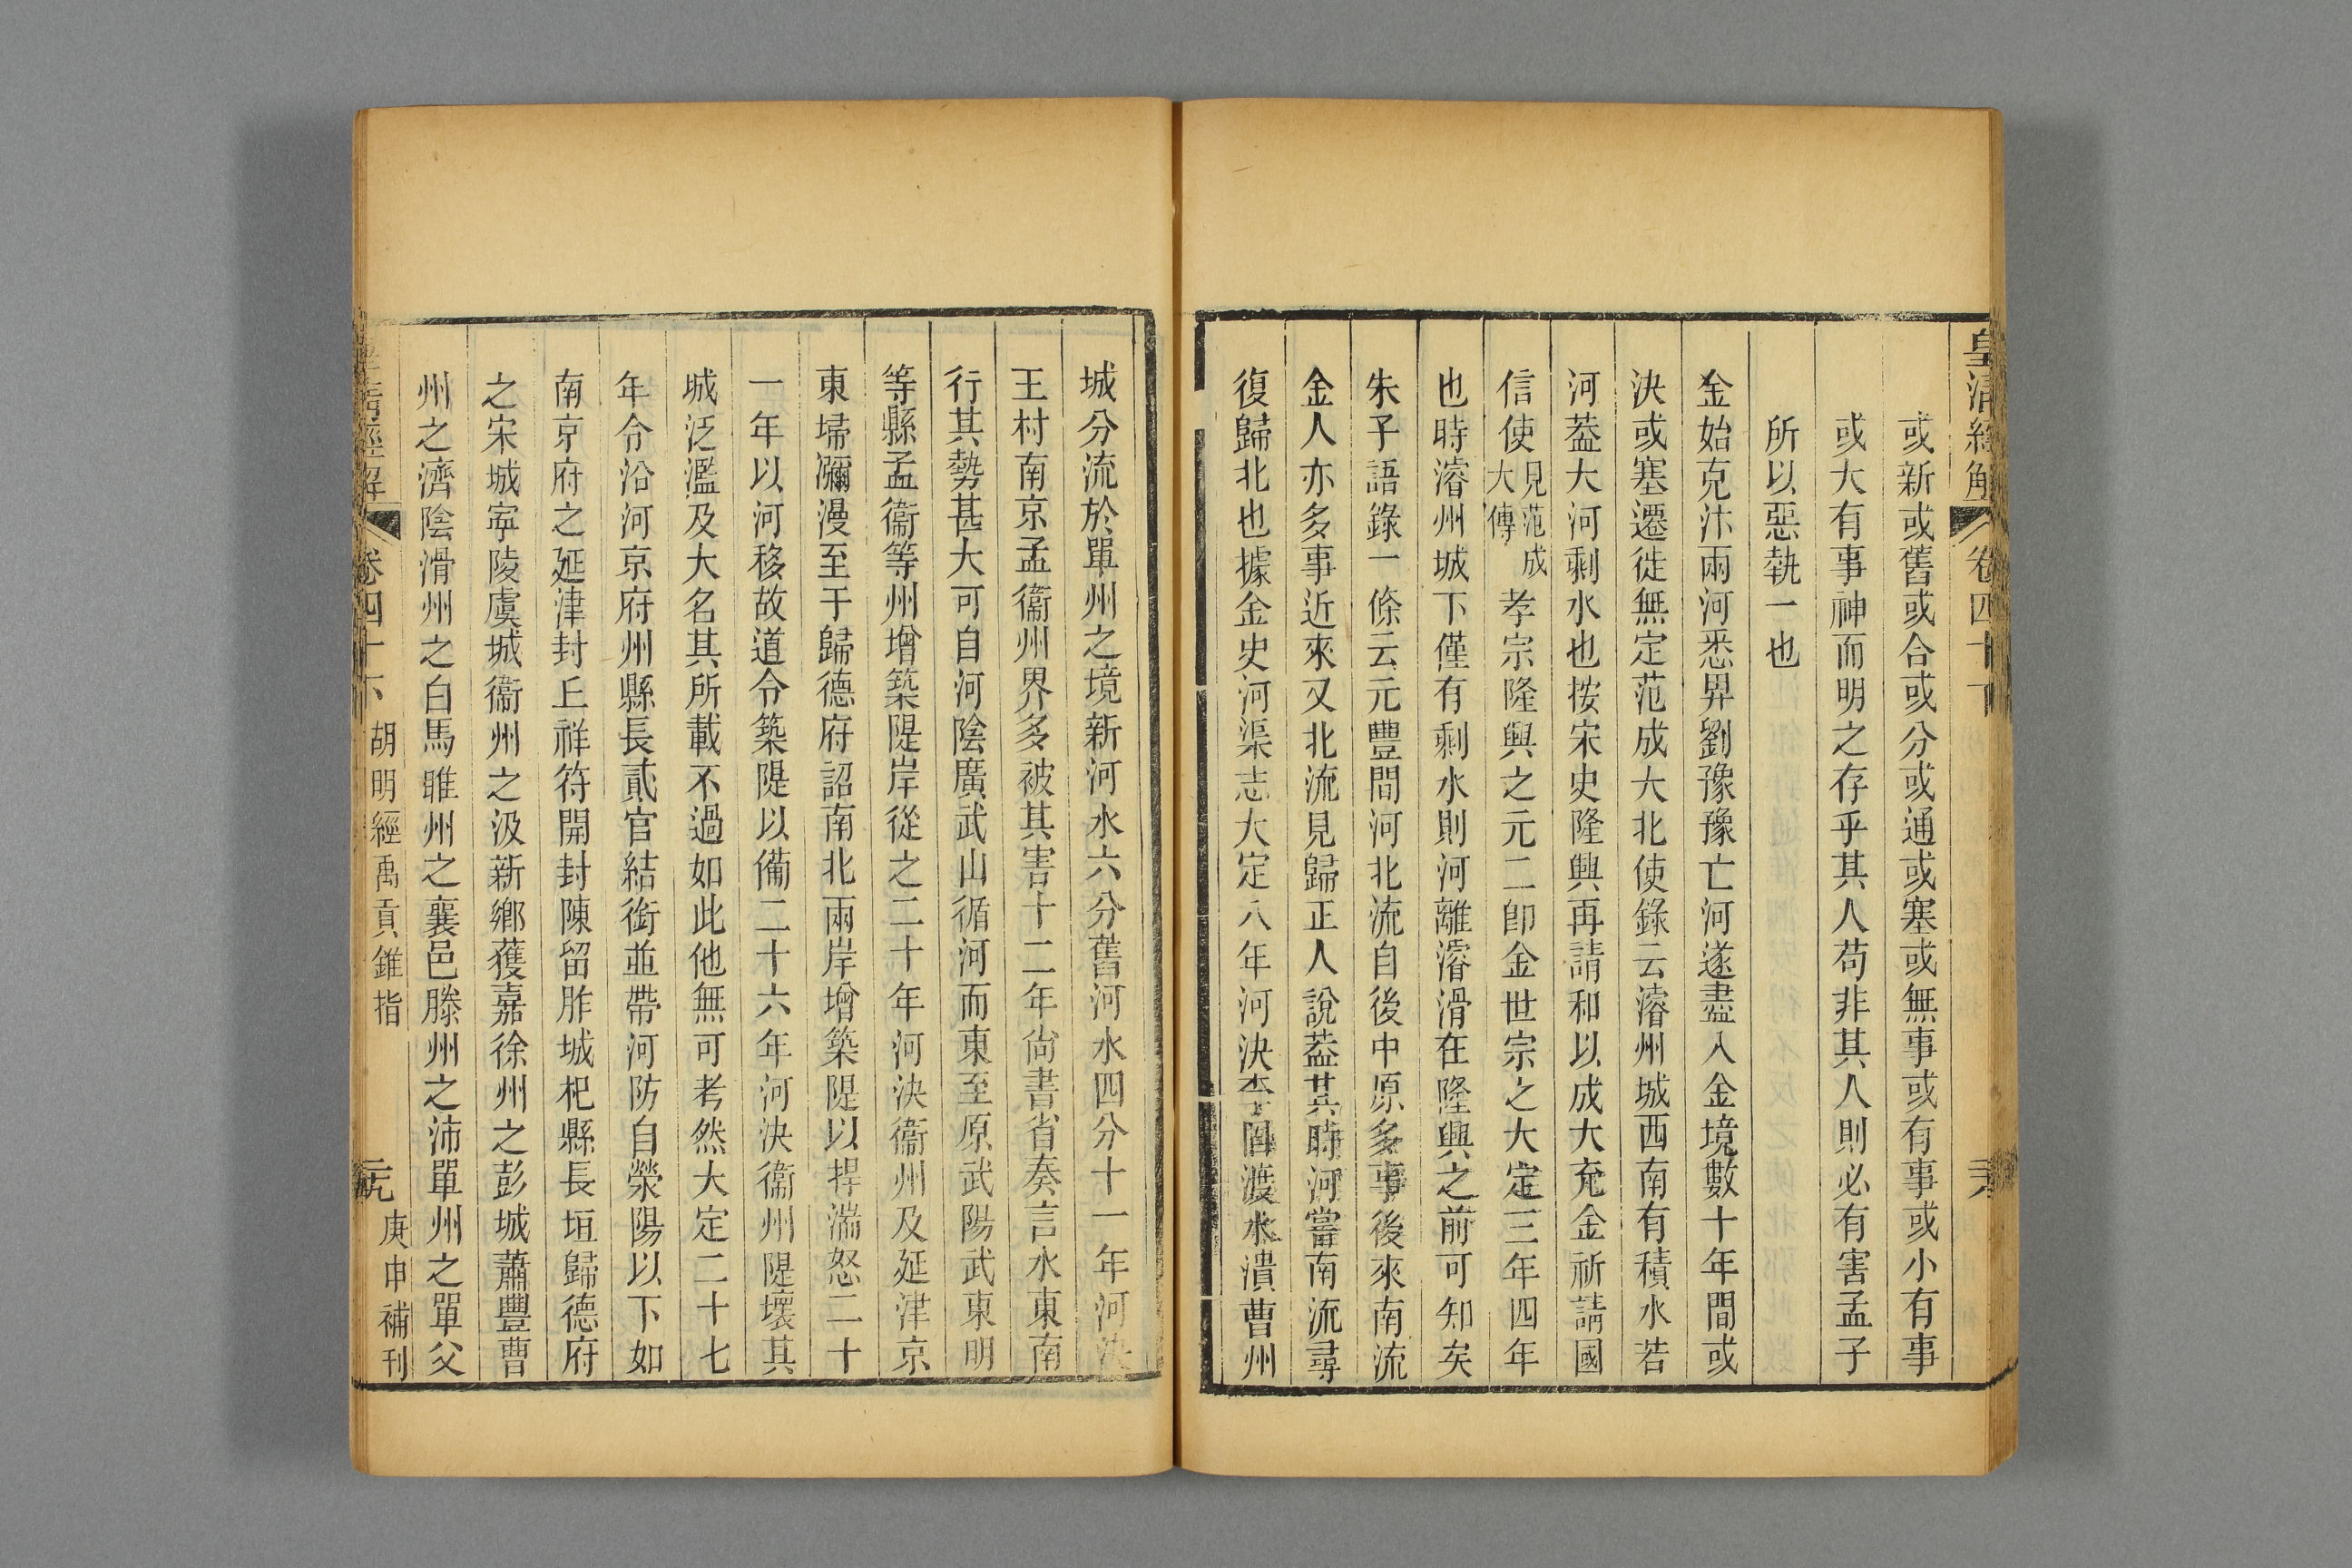 皇清經解 卷四十下
或新或舊或合或分或通或塞或無事或有事或小有事
或大有事神而明之存乎其人苟非其人則必有害孟子
所以惡執一也
金始克汴兩河悉畀劉豫豫亡河遂盡入金境數十年間或
決或塞遷徙無定范成大北使錄云濬州城西南有積水若
河葢大河剩水也按宋史隆興再請和以成大充金祈請國
信使見范成大傳孝宗隆興之元二卽金世宗之大定三年四年
也時濬州城下僅有剩水則河離濬滑在隆興之前可知矣
朱子語錄一條云元豐間河北流自後中原多事後來南流
金人亦多事近來又北流見歸正人說葢其時河嘗南流尋
復歸北也據金史河渠志大定八年河決李固渡水潰曹州
城分流於單州之境新河水六分舊河水四分十一年河決
王村南京孟衞州界多被其害十二年尙書省奏言水東南
行其勢甚大可自河陰廣武山循河而東至原武陽武東明
等縣孟衞等州增築隄岸從之二十年河決衞州及延津京
東埽瀰漫至于歸德府詔南北兩岸增築隄以捍湍怒二十
一年以河移故道令築隄以備二十六年河決衞州隄壞其
城泛濫及大名其所載不過如此他無可考然大定二十七
年令沿河京府州縣長貳官結銜並帶河防自滎陽以下如
南京府之延津封丘祥符開封陳留胙城杞縣長垣歸德府
之宋城寧陵虞城衞州之汲新鄉獲嘉徐州之彭城蕭豐曹
州之濟陰滑州之白馬睢州之襄邑滕州之沛單州之單父
皇清經解 卷四十下 胡明經禹貢錐指 元 庚申補刊